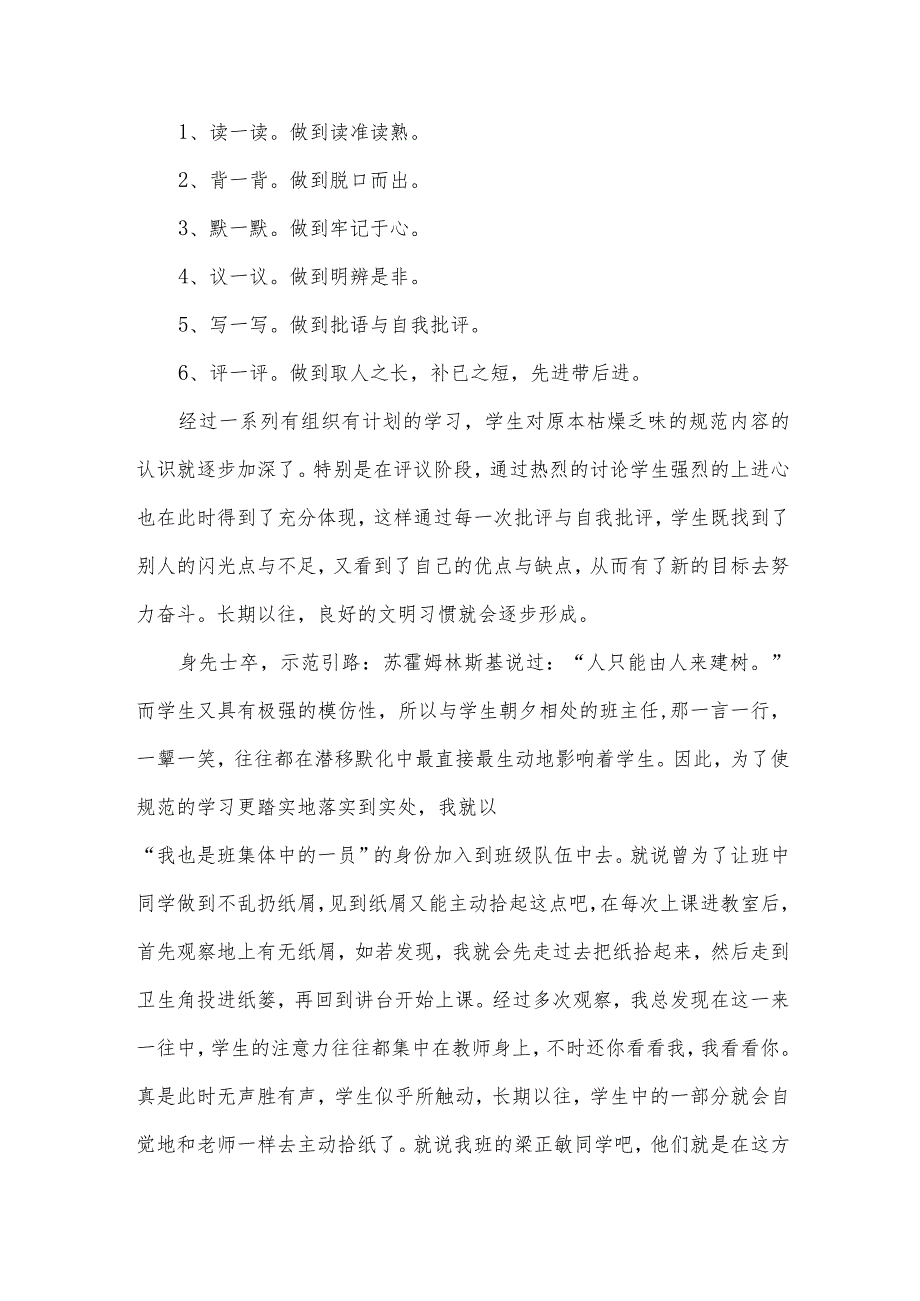 1、读一读。做到读准读熟。
2、背一背。做到脱口而出。
3、默一默。做到牢记于心。
4、议一议。做到明辨是非。
5、写一写。做到批语与自我批评。
6、评一评。做到取人之长，补已之短，先进带后进。
经过一系列有组织有计划的学习，学生对原本枯燥乏味的规范内容的
认识就逐步加深了。特别是在评议阶段，通过热烈的讨论学生强烈的上进心
也在此时得到了充分体现，这样通过每一次批评与自我批评，学生既找到了
别人的闪光点与不足，又看到了自己的优点与缺点，从而有了新的目标去努
力奋斗。长期以往，良好的文明习惯就会逐步形成。
身先士卒，示范引路：苏霍姆林斯基说过：“人只能由人来建树。”
而学生又具有极强的模仿性，所以与学生朝夕相处的班主任,那一言一行，
一颦一笑，往往都在潜移默化中最直接最生动地影响着学生。因此，为了使
规范的学习更踏实地落实到实处，我就以
“我也是班集体中的一员”的身份加入到班级队伍中去。就说曾为了让班中
同学做到不乱扔纸屑，见到纸屑又能主动拾起这点吧，在每次上课进教室后，
首先观察地上有无纸屑，如若发现，我就会先走过去把纸拾起来，然后走到
卫生角投进纸篓，再回到讲台开始上课。经过多次观察，我总发现在这一来
一往中，学生的注意力往往都集中在教师身上，不时还你看看我，我看看你。
真是此时无声胜有声，学生似乎所触动，长期以往，学生中的一部分就会自
觉地和老师一样去主动拾纸了。就说我班的梁正敏同学吧，他们就是在这方